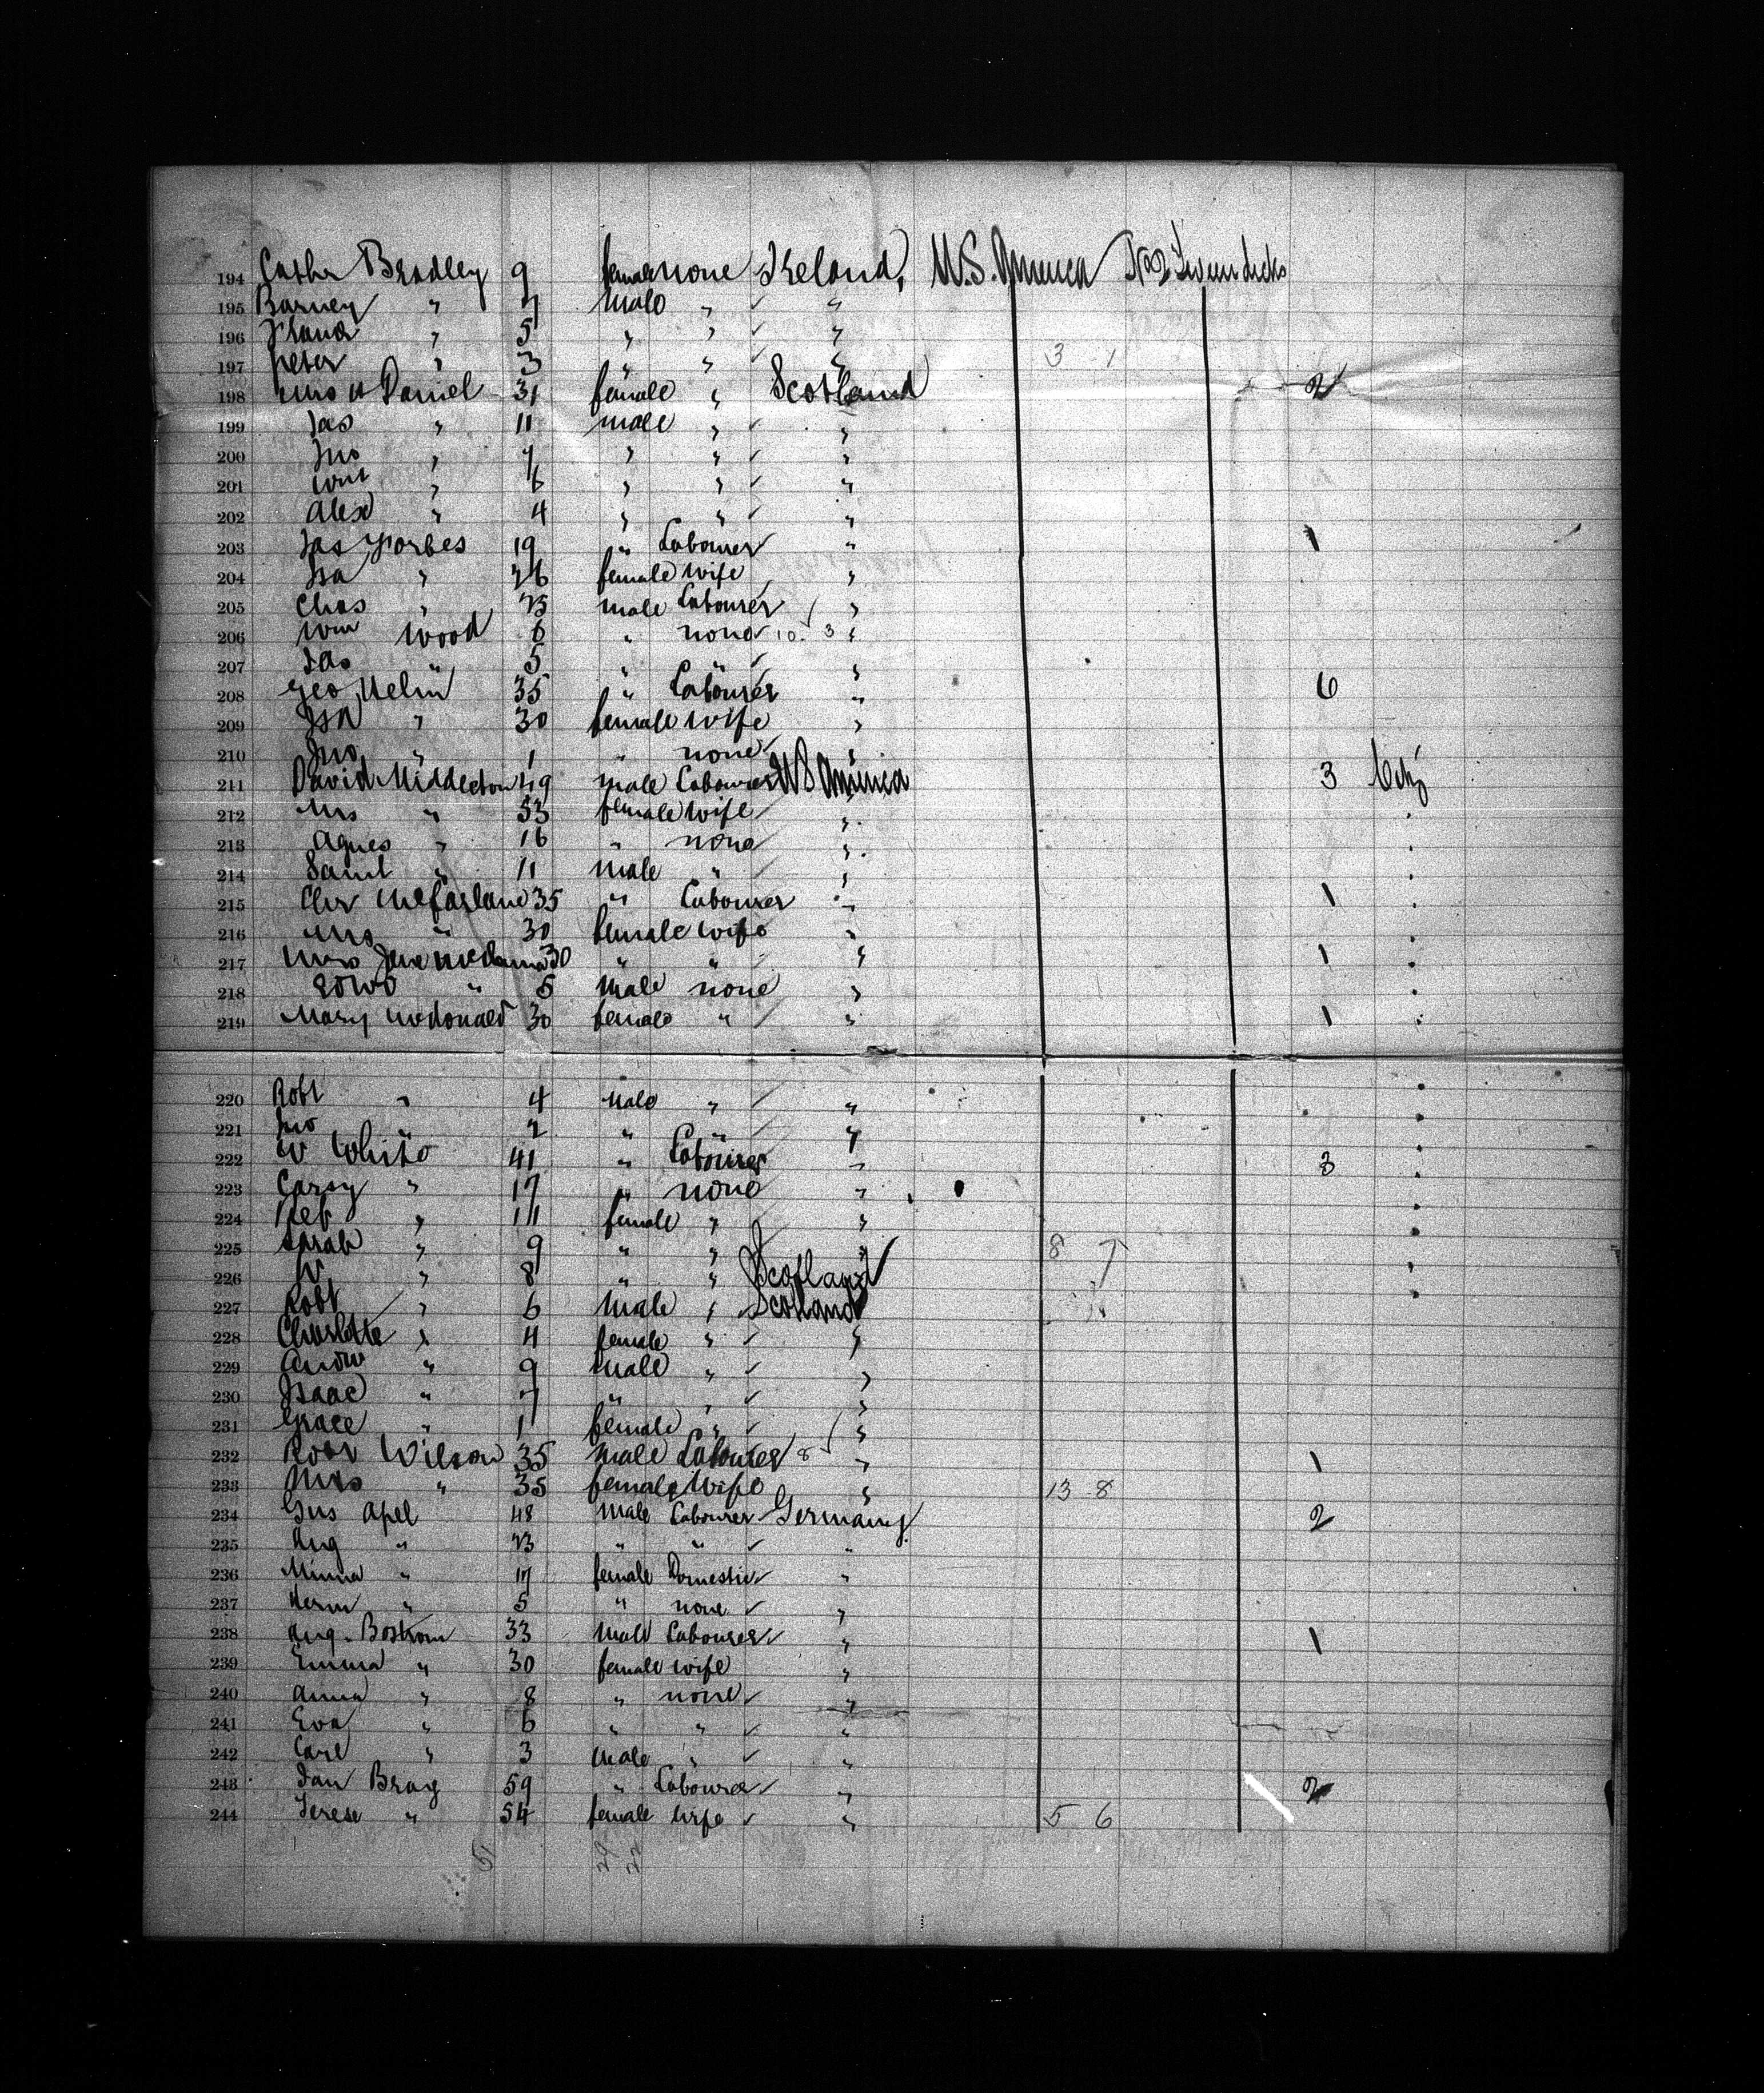 194 Cathr Bradley 9 female none Ireland, U.S. America No 2 Tween decks
195 Barney " 7 male " "
196 " 5 " " "
197 Peter " 3 " " " 3 1
198 Mrs Daniel 31 female " Scotland 2
199 Jas " 11 male " "
200 Jno " 7 " " "
201 Wm " 6 " " "
202 Alexr " 4 " " "
203 Jas Forbes 19 " Labourer " 1
204 Isa " 26 female wife "
205 Chas " 23 male Labourer "
206 Wm Wood 6 " none 10 3 "
207 Jas " 5 " " "
208 Geo Helm 35 " Labourer " 6
209 Isa " 30 female wife "
210 Jno " 1 " none "
211 David Middleton 49 male Labourer U S America 3
212 Mrs " 53 female wife "
213 Agnes " 16 " none "
214 Saml " 11 male " "
215 Chr McFarland 35 " Labourer " 1
216 Mrs " 30 female wife "
217 Mrs Jane 30 " " " 1
218 Edwd " 5 male none "
219 Mary McDonald 30 female " " 1
220 Robt " 4 male " "
221 Jno " 2 " " "
222 W White 41 " Labourer " 3
223 " 17 " none "
224 " female " "
225 Sarah " 9 " " " 8 7
226 W " 8 " " Scotland
227 Robt " 6 male " Scotland
228 Charlotte " 4 female " "
229 Andw " 9 male " "
230 Isaac " 7 " " "
231 Grace " 1 female " "
232 Robt Wilson 35 male Labourer 8 " 1
233 Mrs " 35 female wife " 13 8
234 Gus Apel 48 male Labourer Germany 2
235 Aug " 23 " " "
236 Minna " 17 female Domestic "
237 Herm " 5 " none "
238 Aug. Bostrom 33 male Labourer " 1
239 Emma " 30 female wife "
240 Anna " 8 " none "
241 Eva " 6 " " "
242 Carl " 3 male " "
243 Jan Brag 59 " Labourer " 2
244 Terese " 54 female wife " 5 6
51 29 22